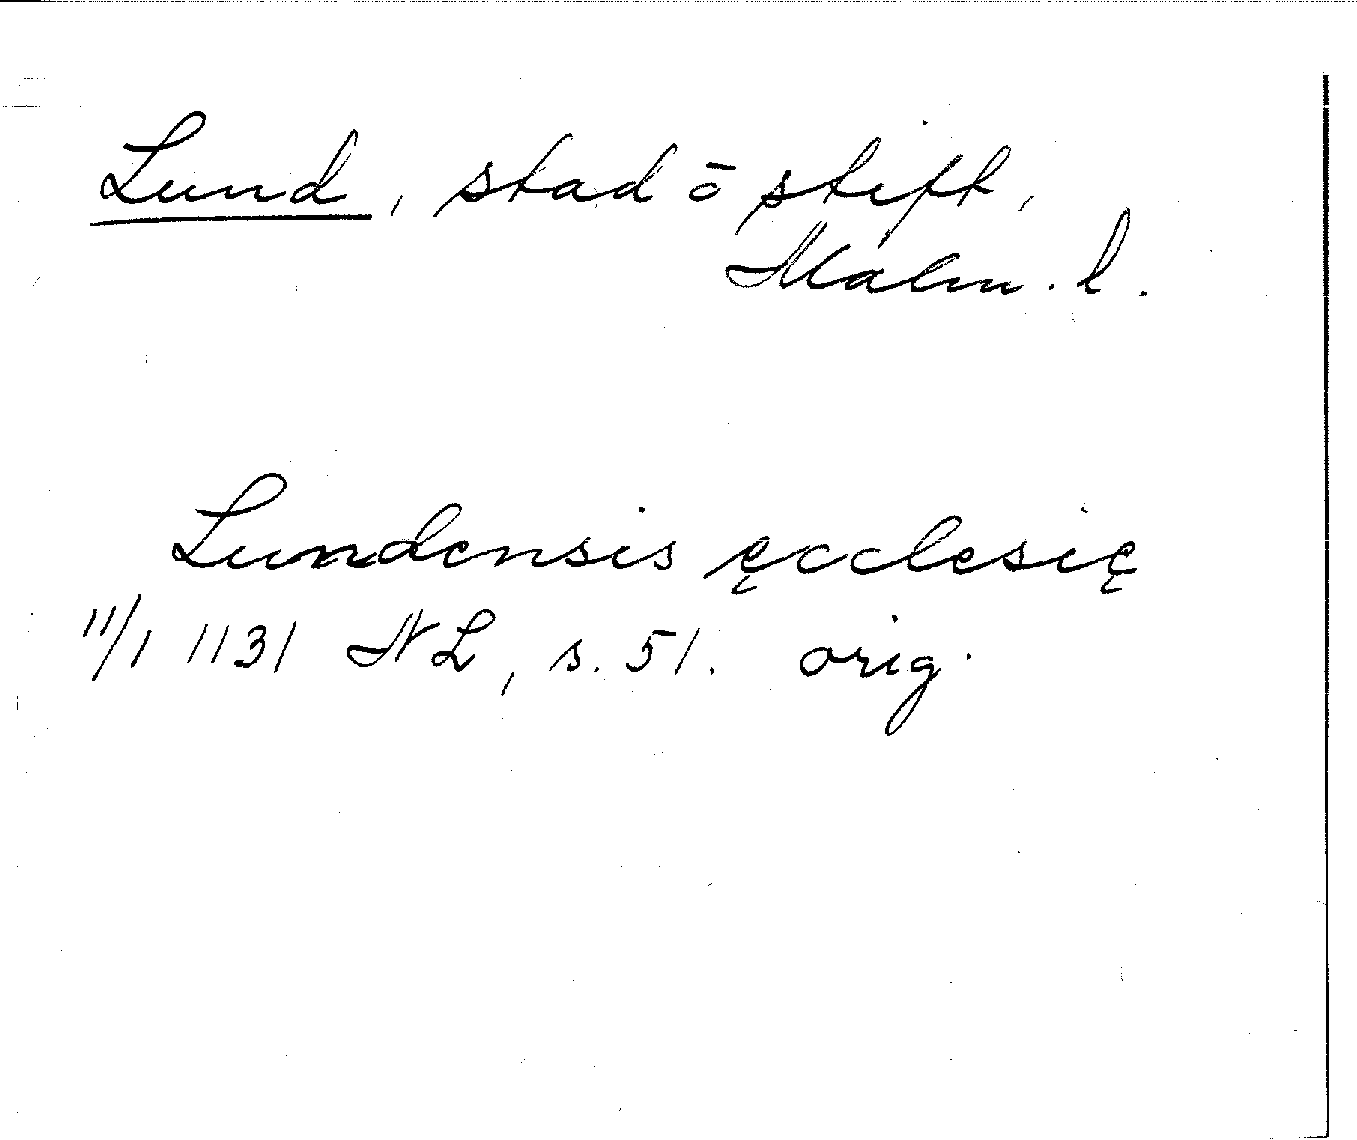 Lund, stad ō stift,
Malm. l.
Lundensis ęcclesię
11/1 1131 NL, s. 51. orig.